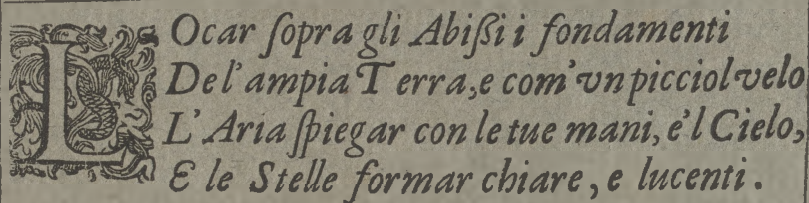 LOcar ſopra gli Abiſſi i fondamenti
De l'ampia Terra, e com'vn picciol velo
L'Aria ſpiegar con le tue mani, e'l Cielo,
E le Stelle formar chiare, e lucenti.